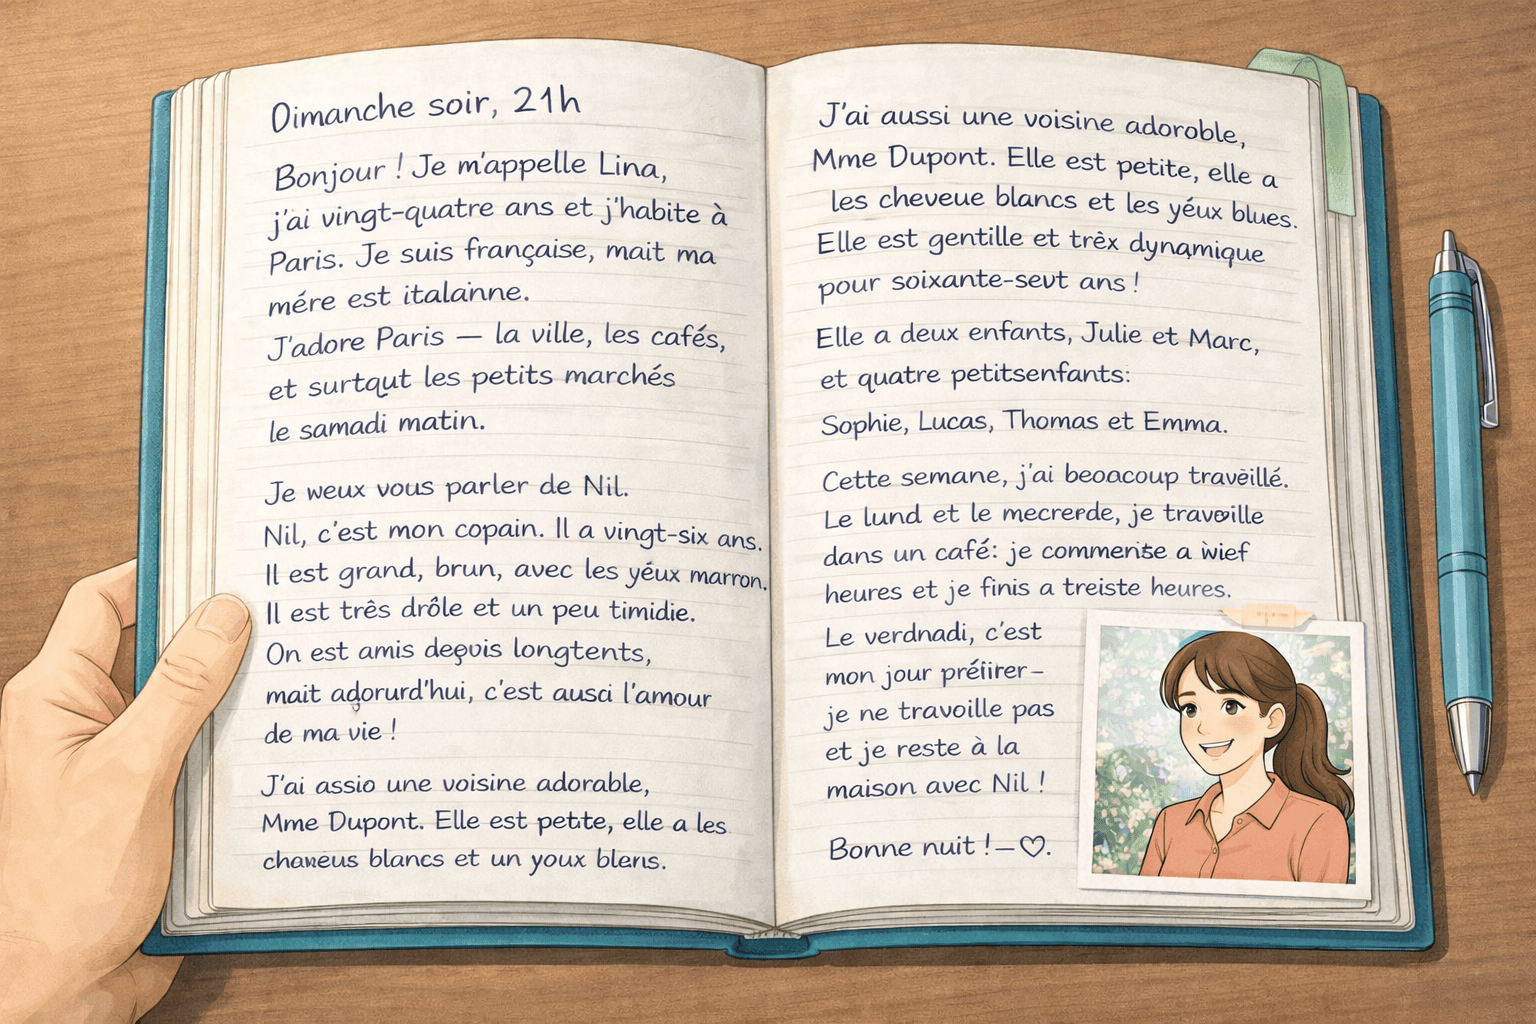 Dimanche soir, 21h
Bonjour ! Je m'appelle Lina,
j'ai vingt-quatre ans et j'habite à
Paris. Je suis française, mait ma
mére est italainne.
J'adore Paris — la ville, les cafés,
et surtqut les petits marchés
le samadi matin.
Je weux vous parler de Nil.
Nil, c'est mon copain. Il a vingt-six ans.
Il est grand, brun, avec les yéux marron.
Il est très drôle et un peu timidie.
On est amis deguis longtents,
mait adjorurd'hui, c'est ausci l'amour
de ma vie !
J'ai assio une voisine adorable,
Mme Dupont. Elle est petite, elle a les
blancs et un youx blens.
J'ai aussi une voisine adoroble,
Mme Dupont. Elle est petite, elle a
les cheveue blancs et les yéux blues.
Elle est gentille et trèx dynamique
pour soixante-sevt ans !
Elle a deux enfants, Julie et Marc,
et quatre petitsenfants:
Sophie, Lucas, Thomas et Emma.
Cette semane, j'ai beoacoup travèillé.
Le lund et le mecrerde, je travoille
dans un café: je commentse a wief
heures et je finis a treiste heures.
Le verdnadi, c'est
mon jour préfirer –
je ne travoille pas
et je reste à la
maison avec Nil !
Bonne nuit ! – ♡.